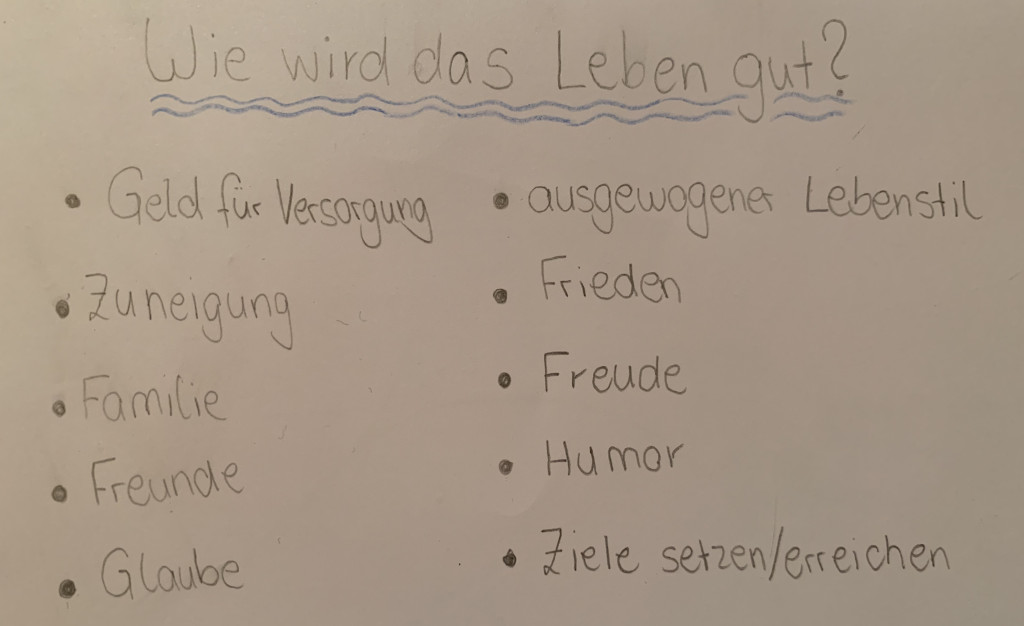 Wie wird das Leben gut?
• Geld für Versorgung
• Zuneigung
• Familie
• Freunde
• Glaube
• ausgewogener Lebenstil
• Frieden
• Freude
• Humor
• Ziele setzen/erreichen